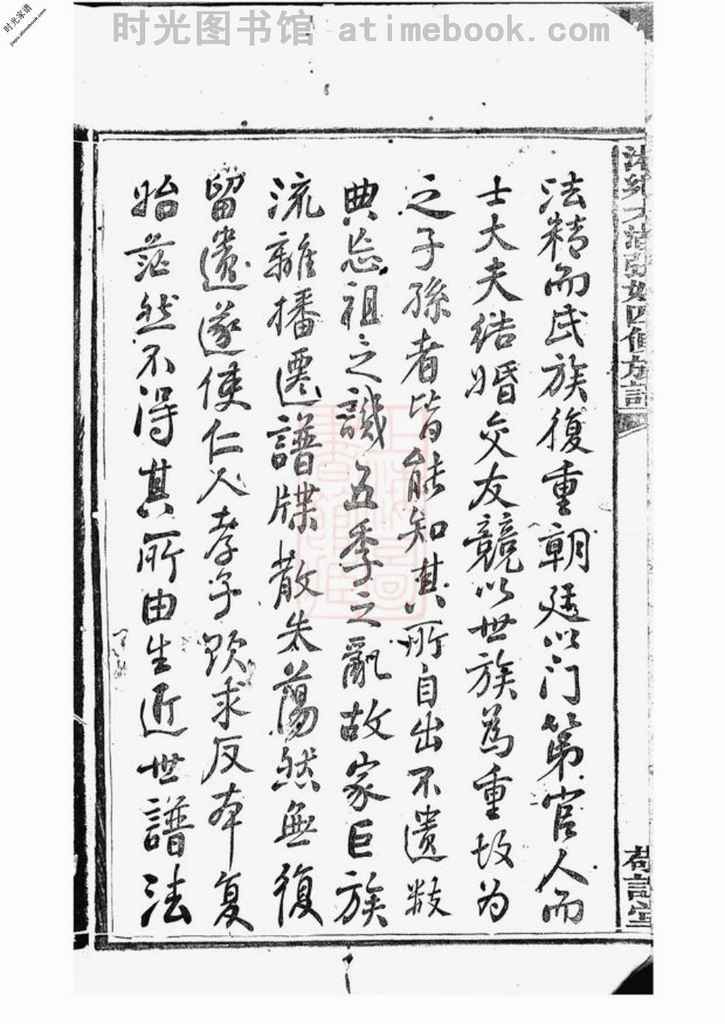 时光图书馆 atimebook.com
时光家谱
法精而氏族復重朝廷以门第官人而
士大夫结婚交友競以世族為重故为
之子孫者皆能知其所自出不遺数
典忘祖之譏五季之亂故家巨族
流離播遷譜牒散失蕩然無復
留遺遂使仁人孝子欲求反本复
始茫然不得其所由生近世譜法